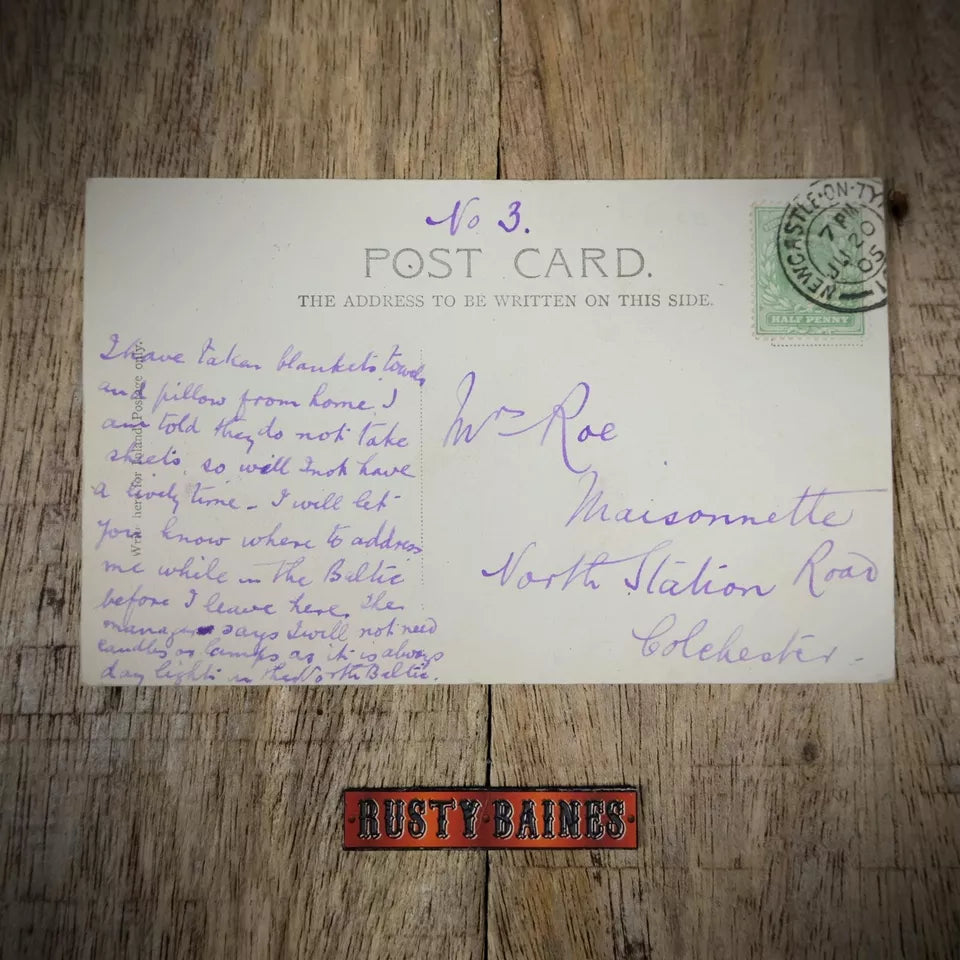 No 3.
POST CARD.
THE ADDRESS TO BE WRITTEN ON THIS SIDE.
NEWCASTLE·ON·TY
7 PM
JU 20
05
HALF PENNY
Write here for Inland Postage only.
I have taken blankets, towels
and pillow from home. I
am told they do not take
sheets, so will I not have
a lively time – I will let
you know where to address
me while in the Baltic
before I leave here. The
manager says I will not need
candles or lamps as it is always
day light in the North Baltic.
Mrs Roe
Maisonnette
North Station Road
Colchester.
RUSTY BAINES